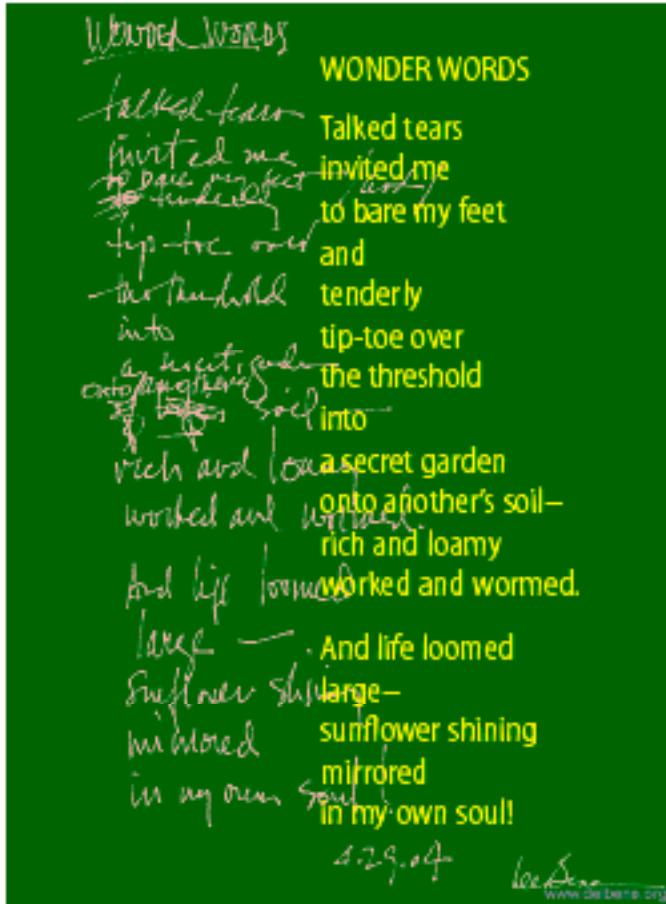 WONDER WORDS
talked tears
invited me
to bare my feet and
tenderly
tip-toe over
the threshold
into
a secret garden
onto another's
soil —
rich and loamy
worked and wormed.
And life loomed
large —
sunflower shining
mirrored
in my own soul!
WONDER WORDS
Talked tears
invited me
to bare my feet
and
tenderly
tip-toe over
the threshold
into
a secret garden
onto another's soil—
rich and loamy
worked and wormed.
And life loomed
large—
sunflower shining
mirrored
in my own soul!
4.29.04